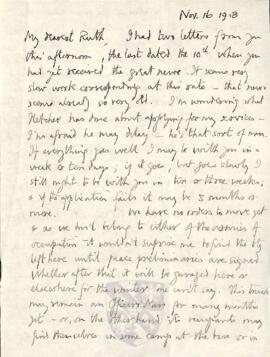 Nov. 16 1918
My dearest Ruth, I had two letters from you
this afternoon, the last dated the 10th when you
had just received the great news. It seems very
slow work corresponding at this rate – that news
seems already so very old. I'm wondering what
Fletcher has done about applying for my services –
I'm afraid he may delay – he's that sort of man.
If everything goes well I may be with you in a
week or ten days; if it goes, but goes slowly I
still ought to be with you in two or three weeks;
& if the application fails it may be 3 months or
more. We have no orders to move yet
& as we don't belong to either of the armies of
occupation it wouldn't surprise me to find the bty
left here until peace preliminaries are signed
Whether after that it will be garaged here or
elsewhere for the winter one can't say. This
may remain an Officers Mess for many months
yet – or, on the other hand its occupants may
find themselves in some camp at the base or in